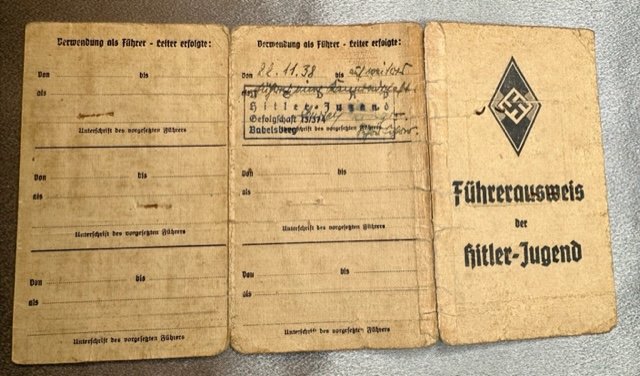 Verwendung als Führer - Leiter erfolgte:
Von bis
als
Unterschrift des vorgesetzten Führers
Von bis
als
Unterschrift des vorgesetzten Führers
Von bis
als
Unterschrift des vorgesetzten Führers
Verwendung als Führer - Leiter erfolgte:
Von 22.11.38 bis
als
Hitler-Jugend
Gefolgschaft 13/374
Babelsberg
Von bis
als
Unterschrift des vorgesetzten Führers
Von bis
als
Unterschrift des vorgesetzten Führers
Führerausweis
der
Hitler-Jugend